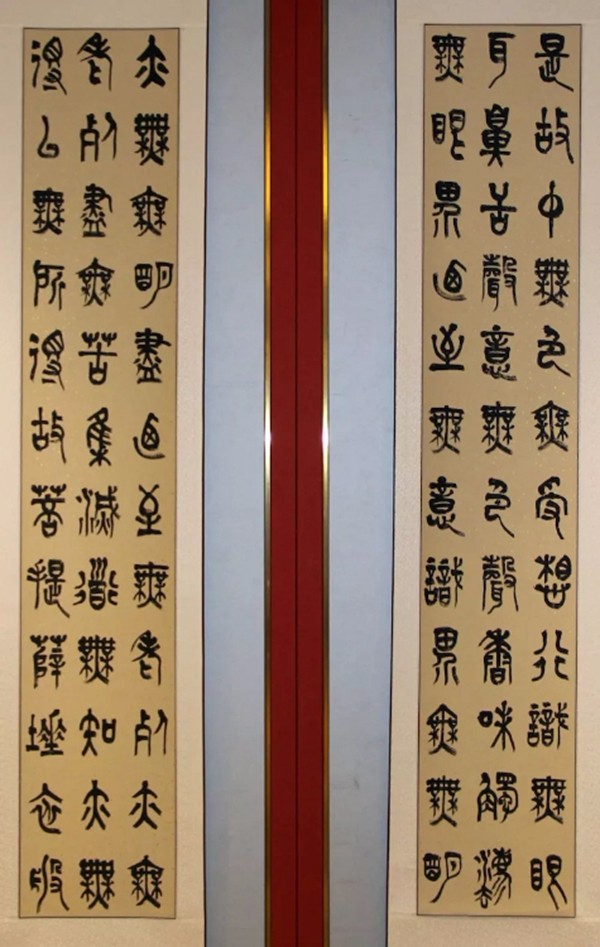 是故中無色無受想行識無眼
耳鼻舌聲意無色聲香味觸法
無眼界乃至無意識界無無明
亦無無明盡乃至無老死亦無
老死盡無苦集滅道無知亦無
得以無所得故菩提薩埵依般